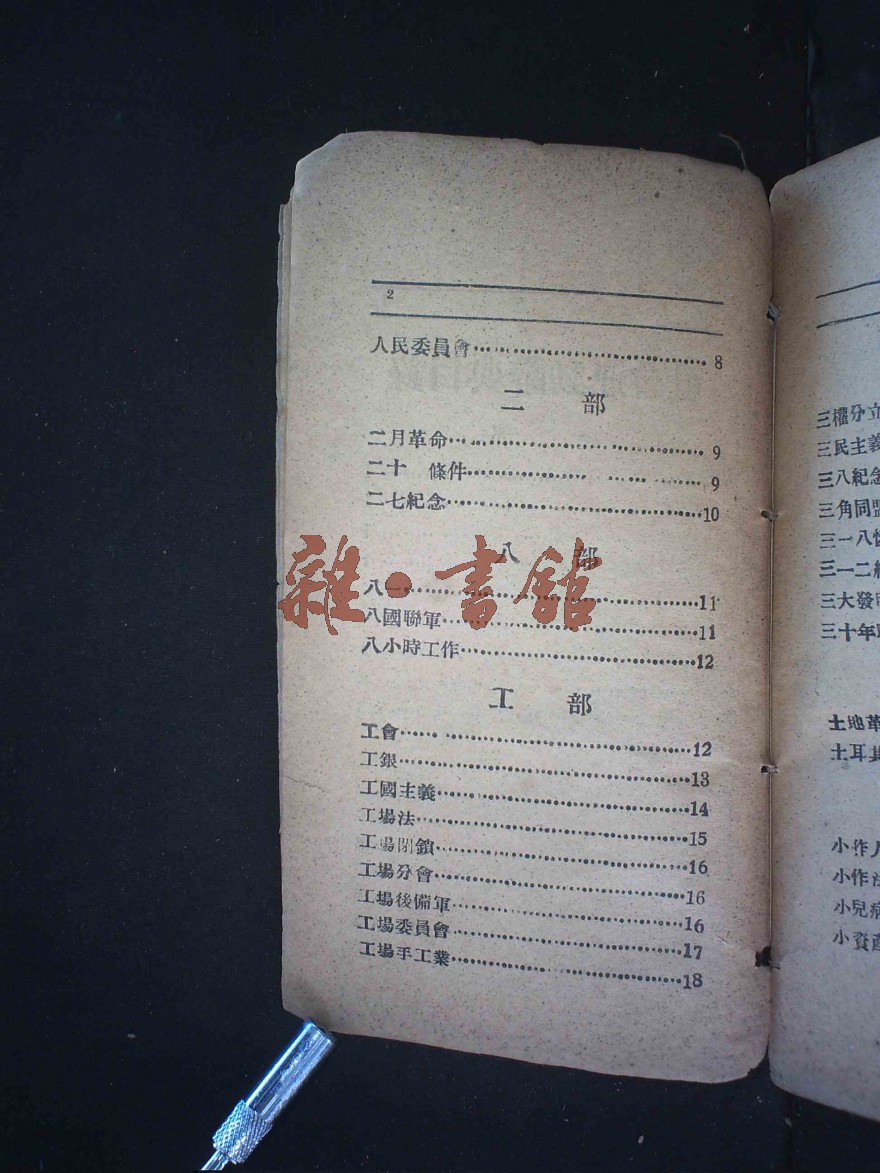 2
人民委員會……8
二 部
二月革命……9
二十 條件……9
二七紀念……10
八 部
八一……11
八國聯軍……11
八小時工作……12
工 部
工會……12
工銀……13
工國主義……14
工場法……15
工場閉鎖……16
工場分會……16
工場後備軍……16
工場委員會……17
工場手工業……18
雜·書館
三權分立
三民主義
三八紀念
三角同盟
三一八
三一二
三大發
三十年
土地革
土耳其
小作人
小作
小兒病
小資產